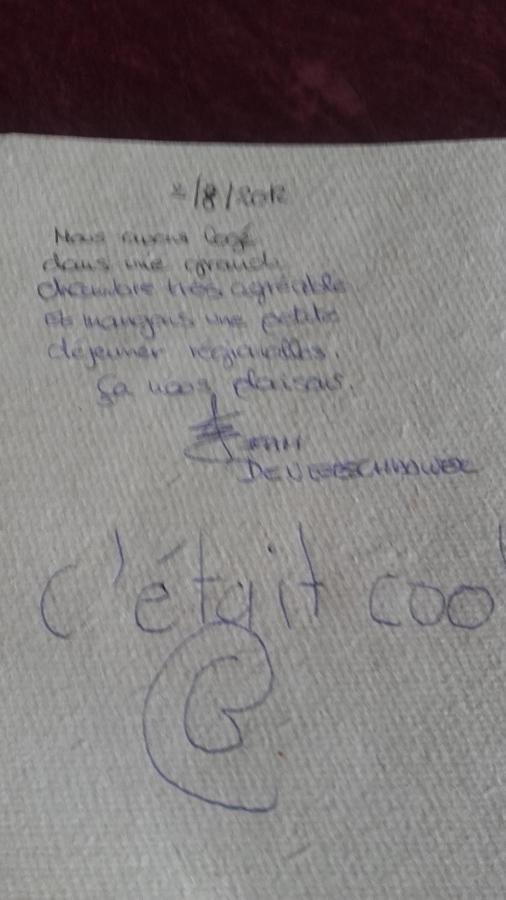 2/8/2012
Nous avons logé
dans une grande
chambre très agréable
et mangons une petite
déjeuner regionalles.
ça nous plaisais.
DEVLEESCHAUWER
c'était coo